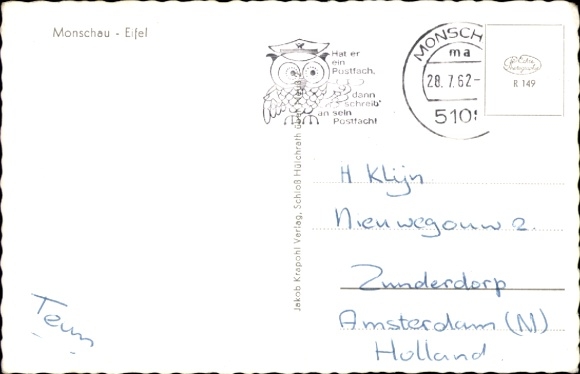 Monschau - Eifel
Hat er
ein
Postfach,
dann
schreib'
an sein
Postfach!
MONSCH
ma
28.7.62-
510
R 149
Jakob Krapohl Verlag, Schloß Hülchrath
H Klijn
Nieuwegouw 2.
Zunderdorp
Amsterdam (N)
Holland.
Teun